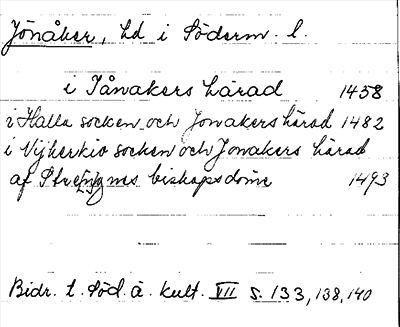 Jönåker, hd i Söderm. l.
i Jånakers härad 1458
i Halla socken och Jonakers härad 1482
i Vijkerkio socken och Jonakers härad
af Strengnes biskopsdöme 1493
Bidr. t. Söd. ä. kult. VII s. 133, 138, 140